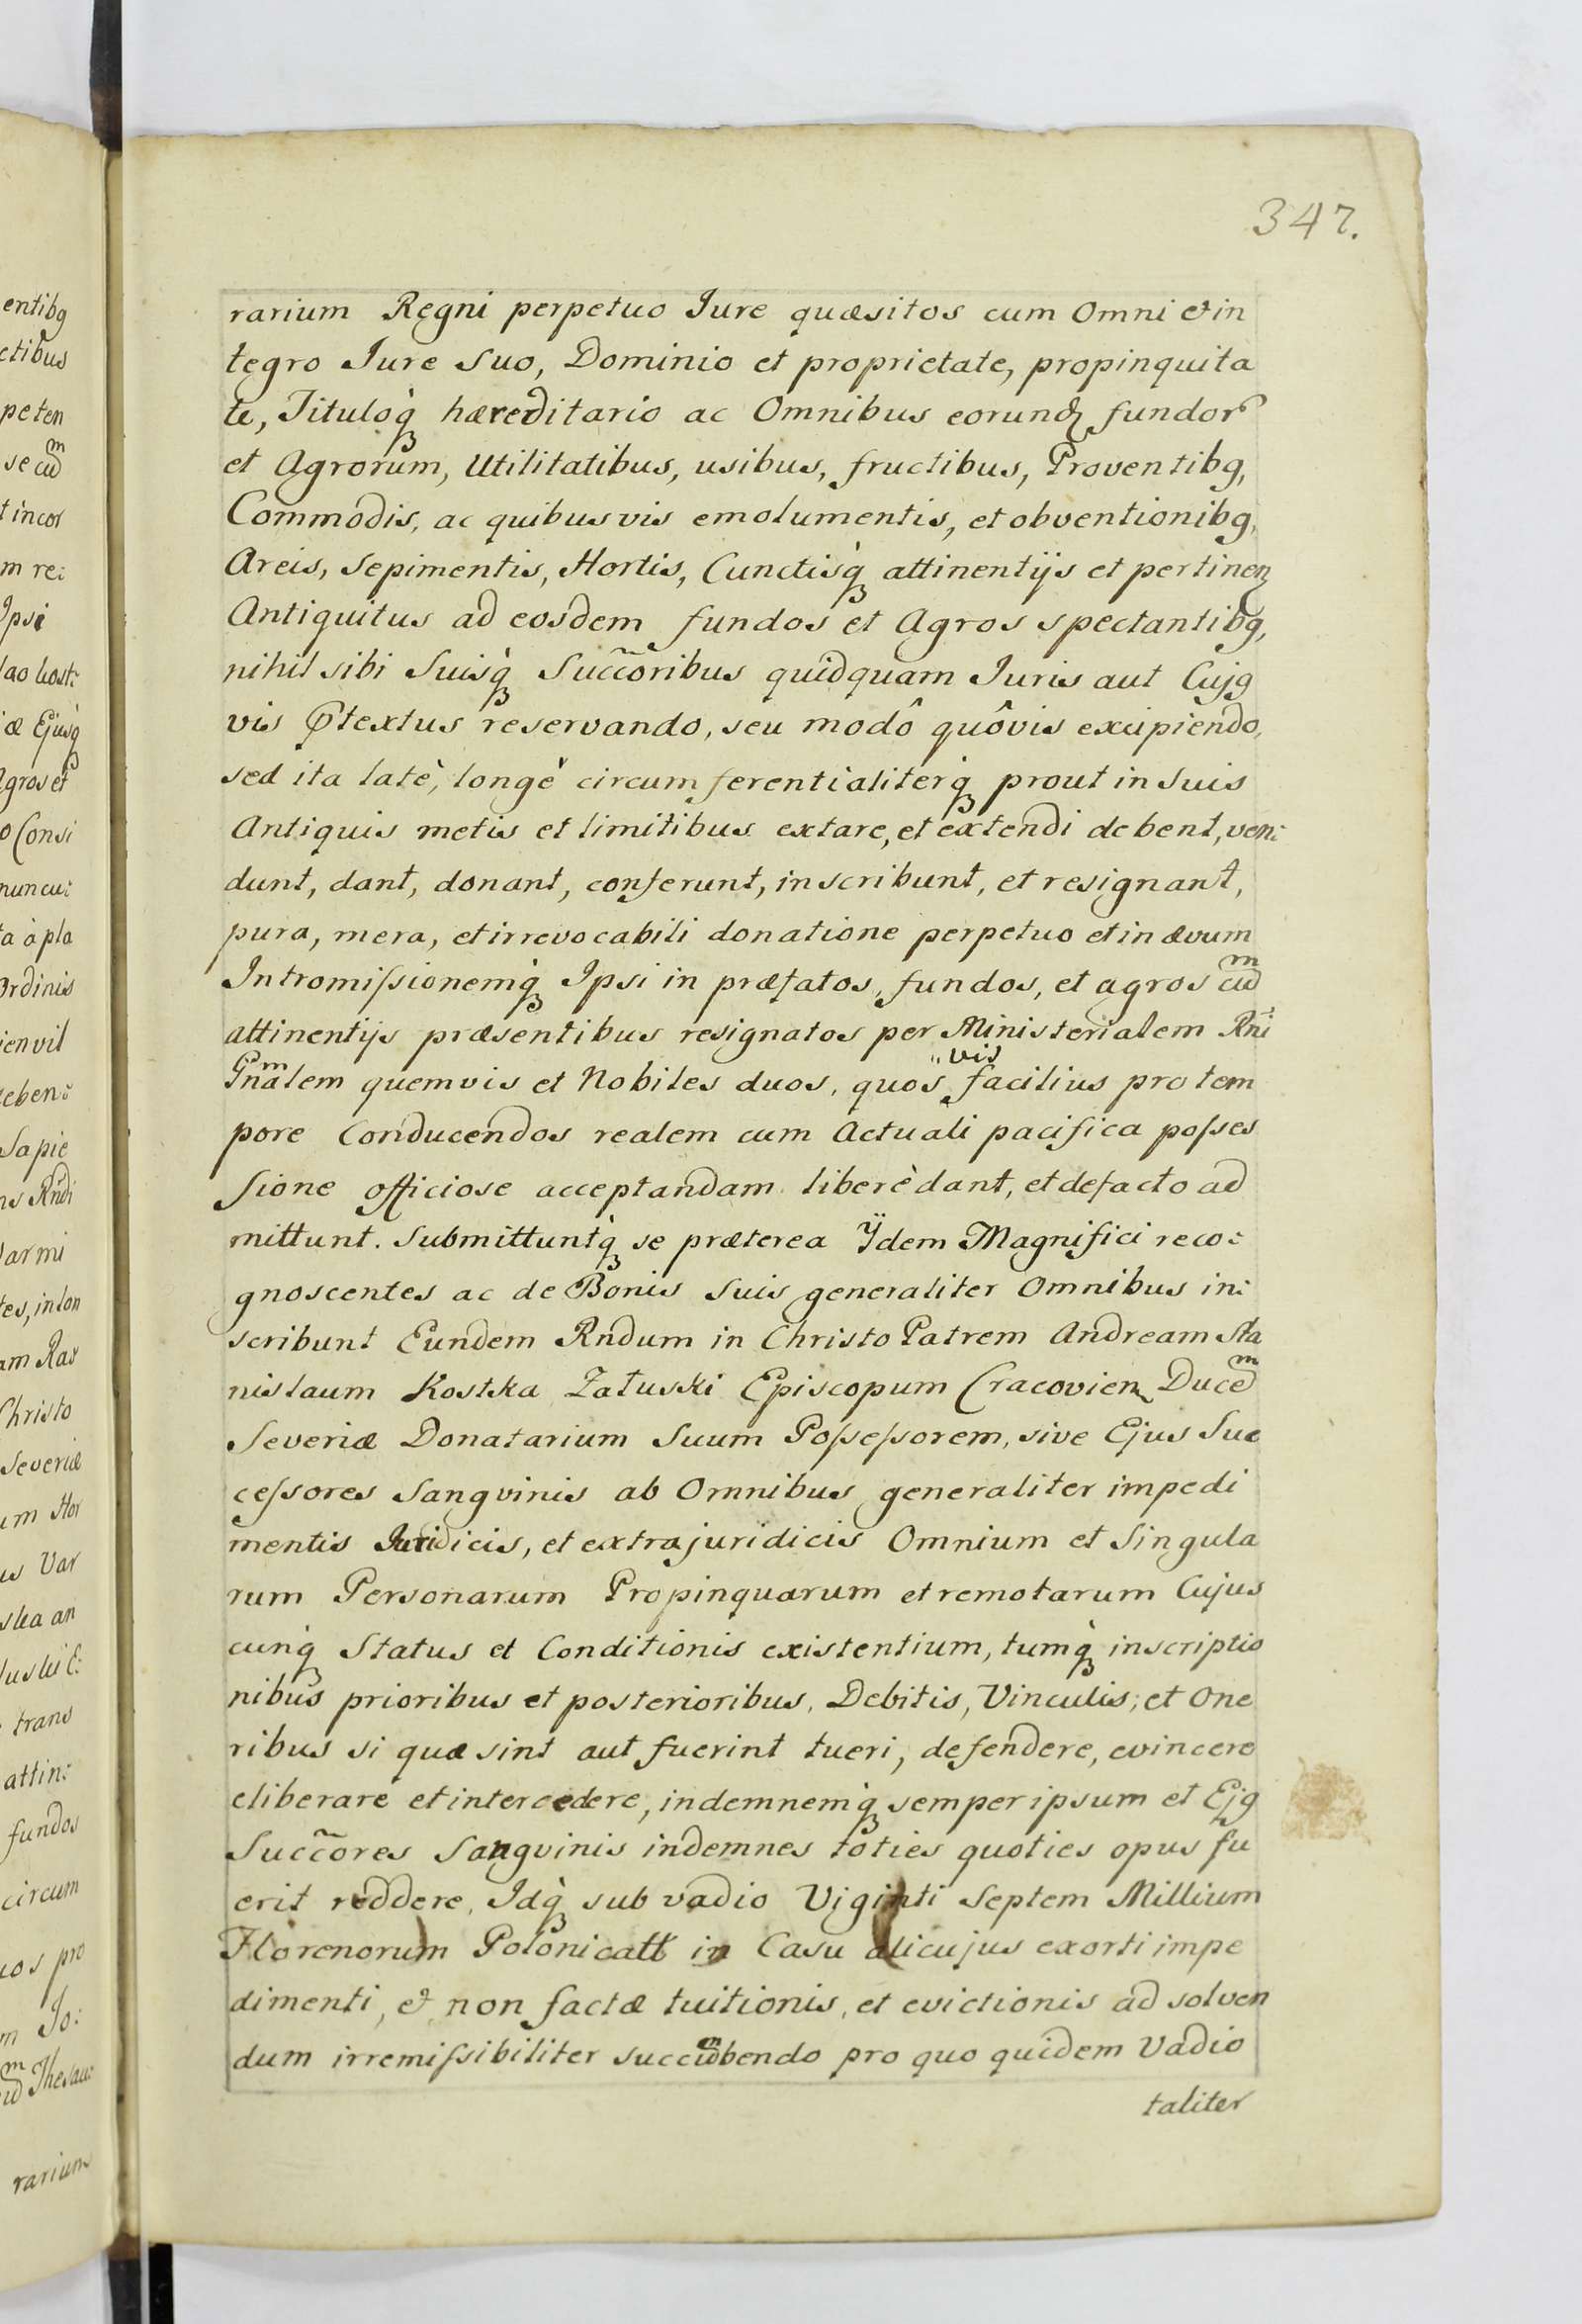 347.
rarium Regni perpetuo Jure quæsitos cum Omni et in
tegro Jure Suo, Dominio et proprietate, propinquita
te, Tituloq́ hæreditario ac Omnibus eorund fundor
et Agrorum, Utilitatibus, usibus, fructibus, Proventibg,
Commodis, ac quibusvis emolumentis, et obventionibg,
Areis, Sepimentis, Hortis, Cunctisq́ attinentijs et pertinen
Antiquitus ad eosdem fundos et Agros spectantibg,
nihil sibi Suisq́ Succ̃oribus quidquam Juris aut Cujg
vis Ptextus reservando, seu modô quôvis excipiendo,
sed ita latè, longè circumferentialiterq́ prout in suis
Antiquis metis et limitibus extare, et extendi debent, ven:
dunt, dant, donant, conferunt, inscribunt, et resignant,
pura, mera, et irrevocabili donatione perpetuo et in ævum
Intromiſsionemq́ Ipsi in præfatos, fundos, et agros cum
attinentijs præsentibus resignatos per Ministerialem Rni
Gnalem quemvis et Nobiles duos, quos vis facilius pro tem
pore Conducendos realem cum Actuali pacifica poſses
sione officiose acceptandam liberè dant, et defacto ad
mittunt. Submittuntq́ se præterea Ÿdem Magnifici reco:
gnoscentes ac de Bonis Suis generaliter Omnibus in:
scribunt Eundem Rndum in Christo Patrem Andream Sta
nislaum Kostka Załuski Episcopum Cracovien Ducem
Severiæ Donatarium Suum Poſseſsorem, sive Ejus Suc
ceſsores Sangvinis ab Omnibus generaliter impedi
mentis Juridicis, et extrajuridicis Omnium et Singula
rum Personarum Propinquarum et remotarum Cujus
cunq́ Status et Conditionis existentium, tumq́ inscriptio
nibus prioribus et posterioribus, Debitis, Vinculis, et One
ribus si quæ sint aut fuerint tueri, defendere, evincere
eliberare et intercedere, indemnemq́ semper ipsum et Ejg
Succ̃ores Sangvinis indemnes toties quoties opus fu
erit reddere, Idq́ sub vadio Viginti Septem Millium
Florenorum Polonicall in Casu alicujus exorti impe
dimenti, et non factæ tuitionis, et evictionis ad solven
dum irremiſsibiliter succumbendo pro quo quidem Vadio
taliter